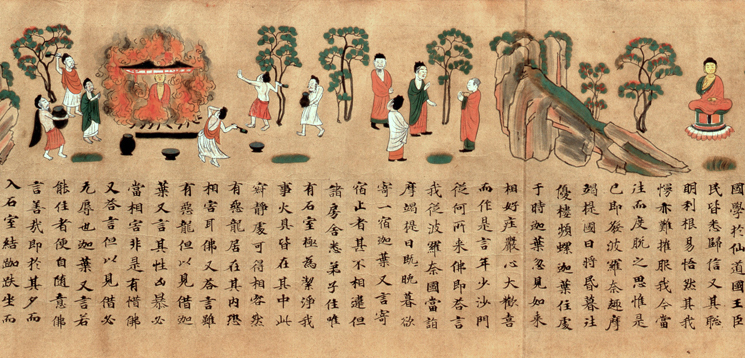 國學於仙道國王臣
民皆悉歸信又其聡
明利根易悟然其我
慢亦難摧服我今當
往而度脱之思惟是
已即發波羅奈趣摩
竭提國日時昏暮往
優樓頻螺迦葉住處
于時迦葉忽見如來
相好莊嚴心大歡喜
而作是言年少沙門
從何所來佛即答言
我從波羅奈國當詣
摩竭提日既晚暮欲
寄一宿迦葉又言寄
宿止者甚不相違但
諸房舍悉弟子住唯
有石室極為潔淨我
事火具皆在其中此
寂靜處可得相容然
有惡龍居在其內恐
相害耳佛又答言雖
有惡龍但以見借迦
葉又言其性凶暴必
當相害非是有惜佛
又答言但以見借必
无辱也迦葉又言若
能住者便自隨意佛
言善我即於其夕而
入石室結跏趺坐而